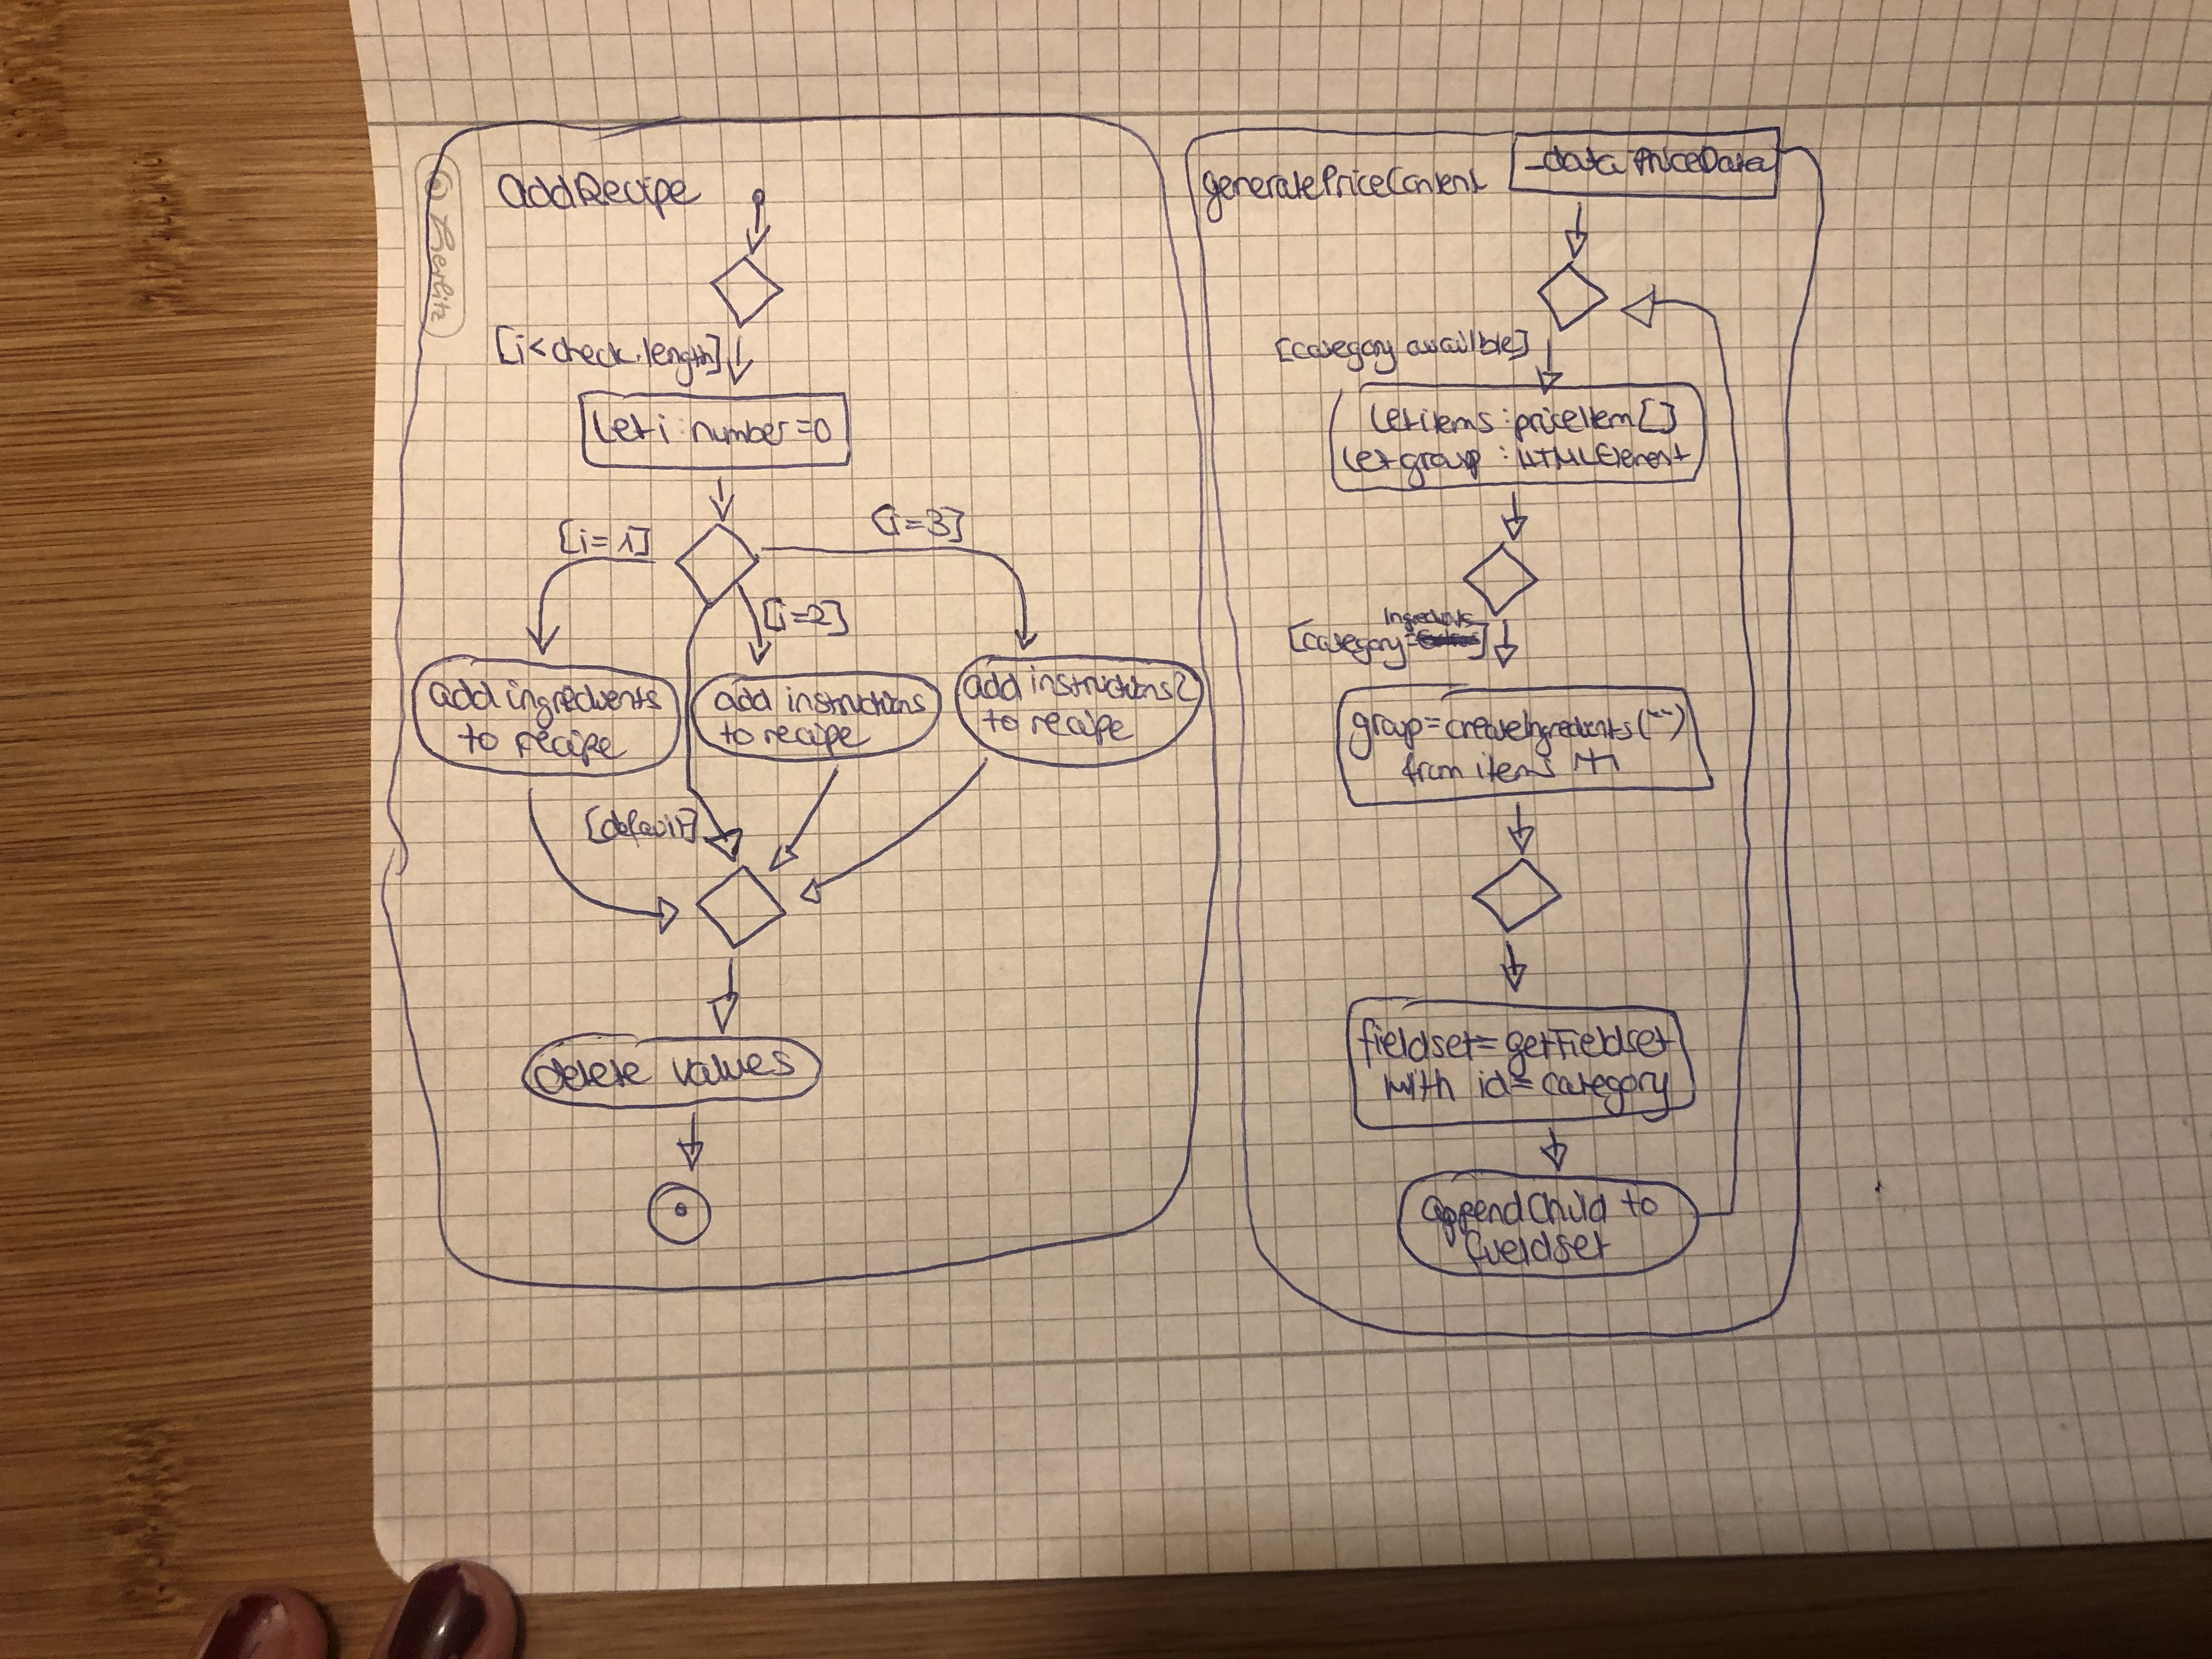 Herlitz
addRecipe
[i<check.length]
let i : number = 0
[i=1]
[i=2]
[i=3]
add ingredients
to recipe
add instructions
to recipe
add instructions2
to recipe
[default]
delete values
generatePriceContent
_data: PriceData
[category availble]
let items : priceItem[]
let group : HTMLElement
Ingredients
[category=
group=createIngredients("")
from items
fieldset= getFieldset
with id= category
appendChild to
fieldset